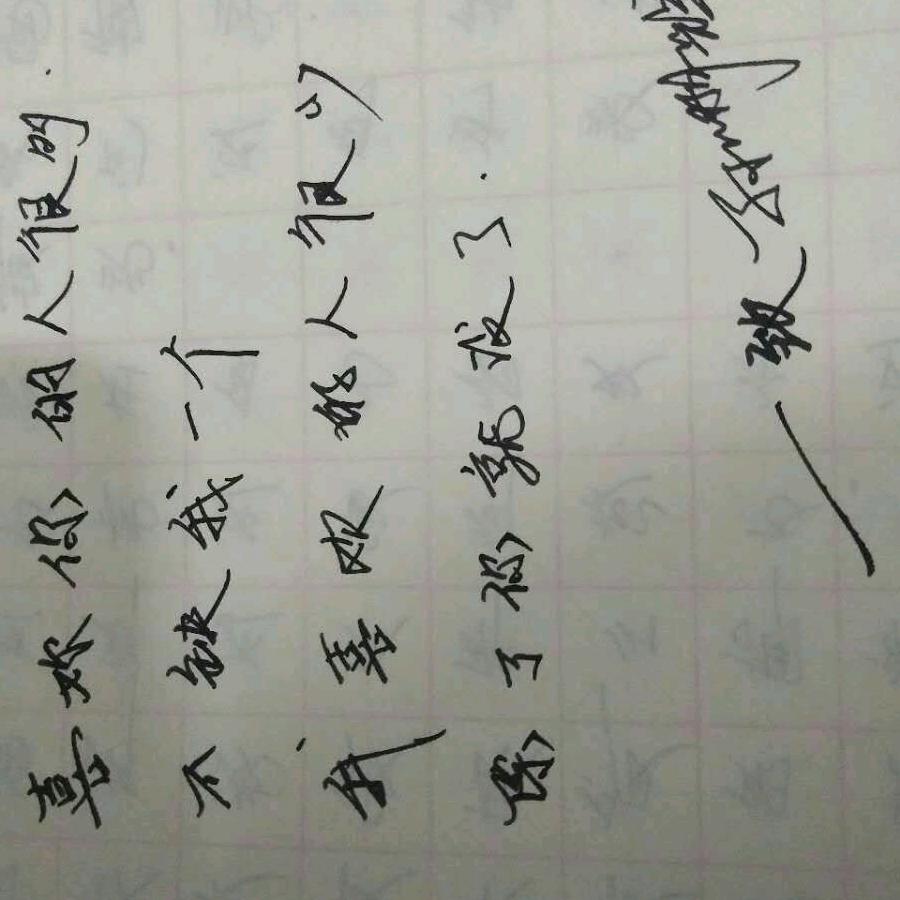 喜欢你的人很多.
不缺我一个
我喜欢的人很少
除了你就没了.
——致